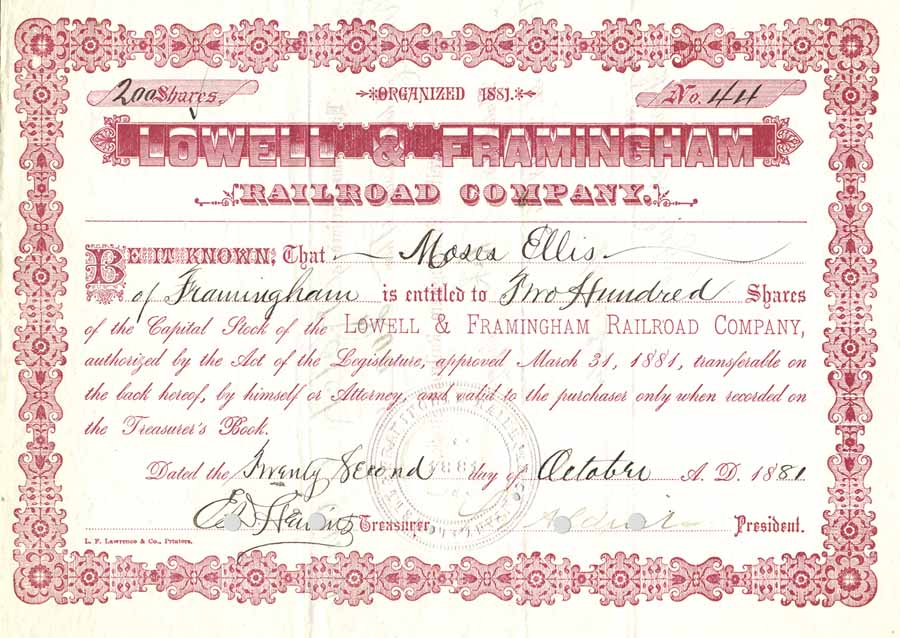 200 Shares. ORGANIZED 1881. No. 44
LOWELL & FRAMINGHAM
RAILROAD COMPANY.
BE IT KNOWN, That Moses Ellis
of Framingham is entitled to Two Hundred Shares
of the Capital Stock of the LOWELL & FRAMINGHAM RAILROAD COMPANY,
authorized by the Act of the Legislature, approved March 31, 1881, transferable on
the back hereof, by himself or Attorney, and valid to the purchaser only when recorded on
the Treasurer's Book.
Dated the Twenty Second day of October A. D. 1881
Treasurer. President.
L. F. Lawrence & Co., Printers.